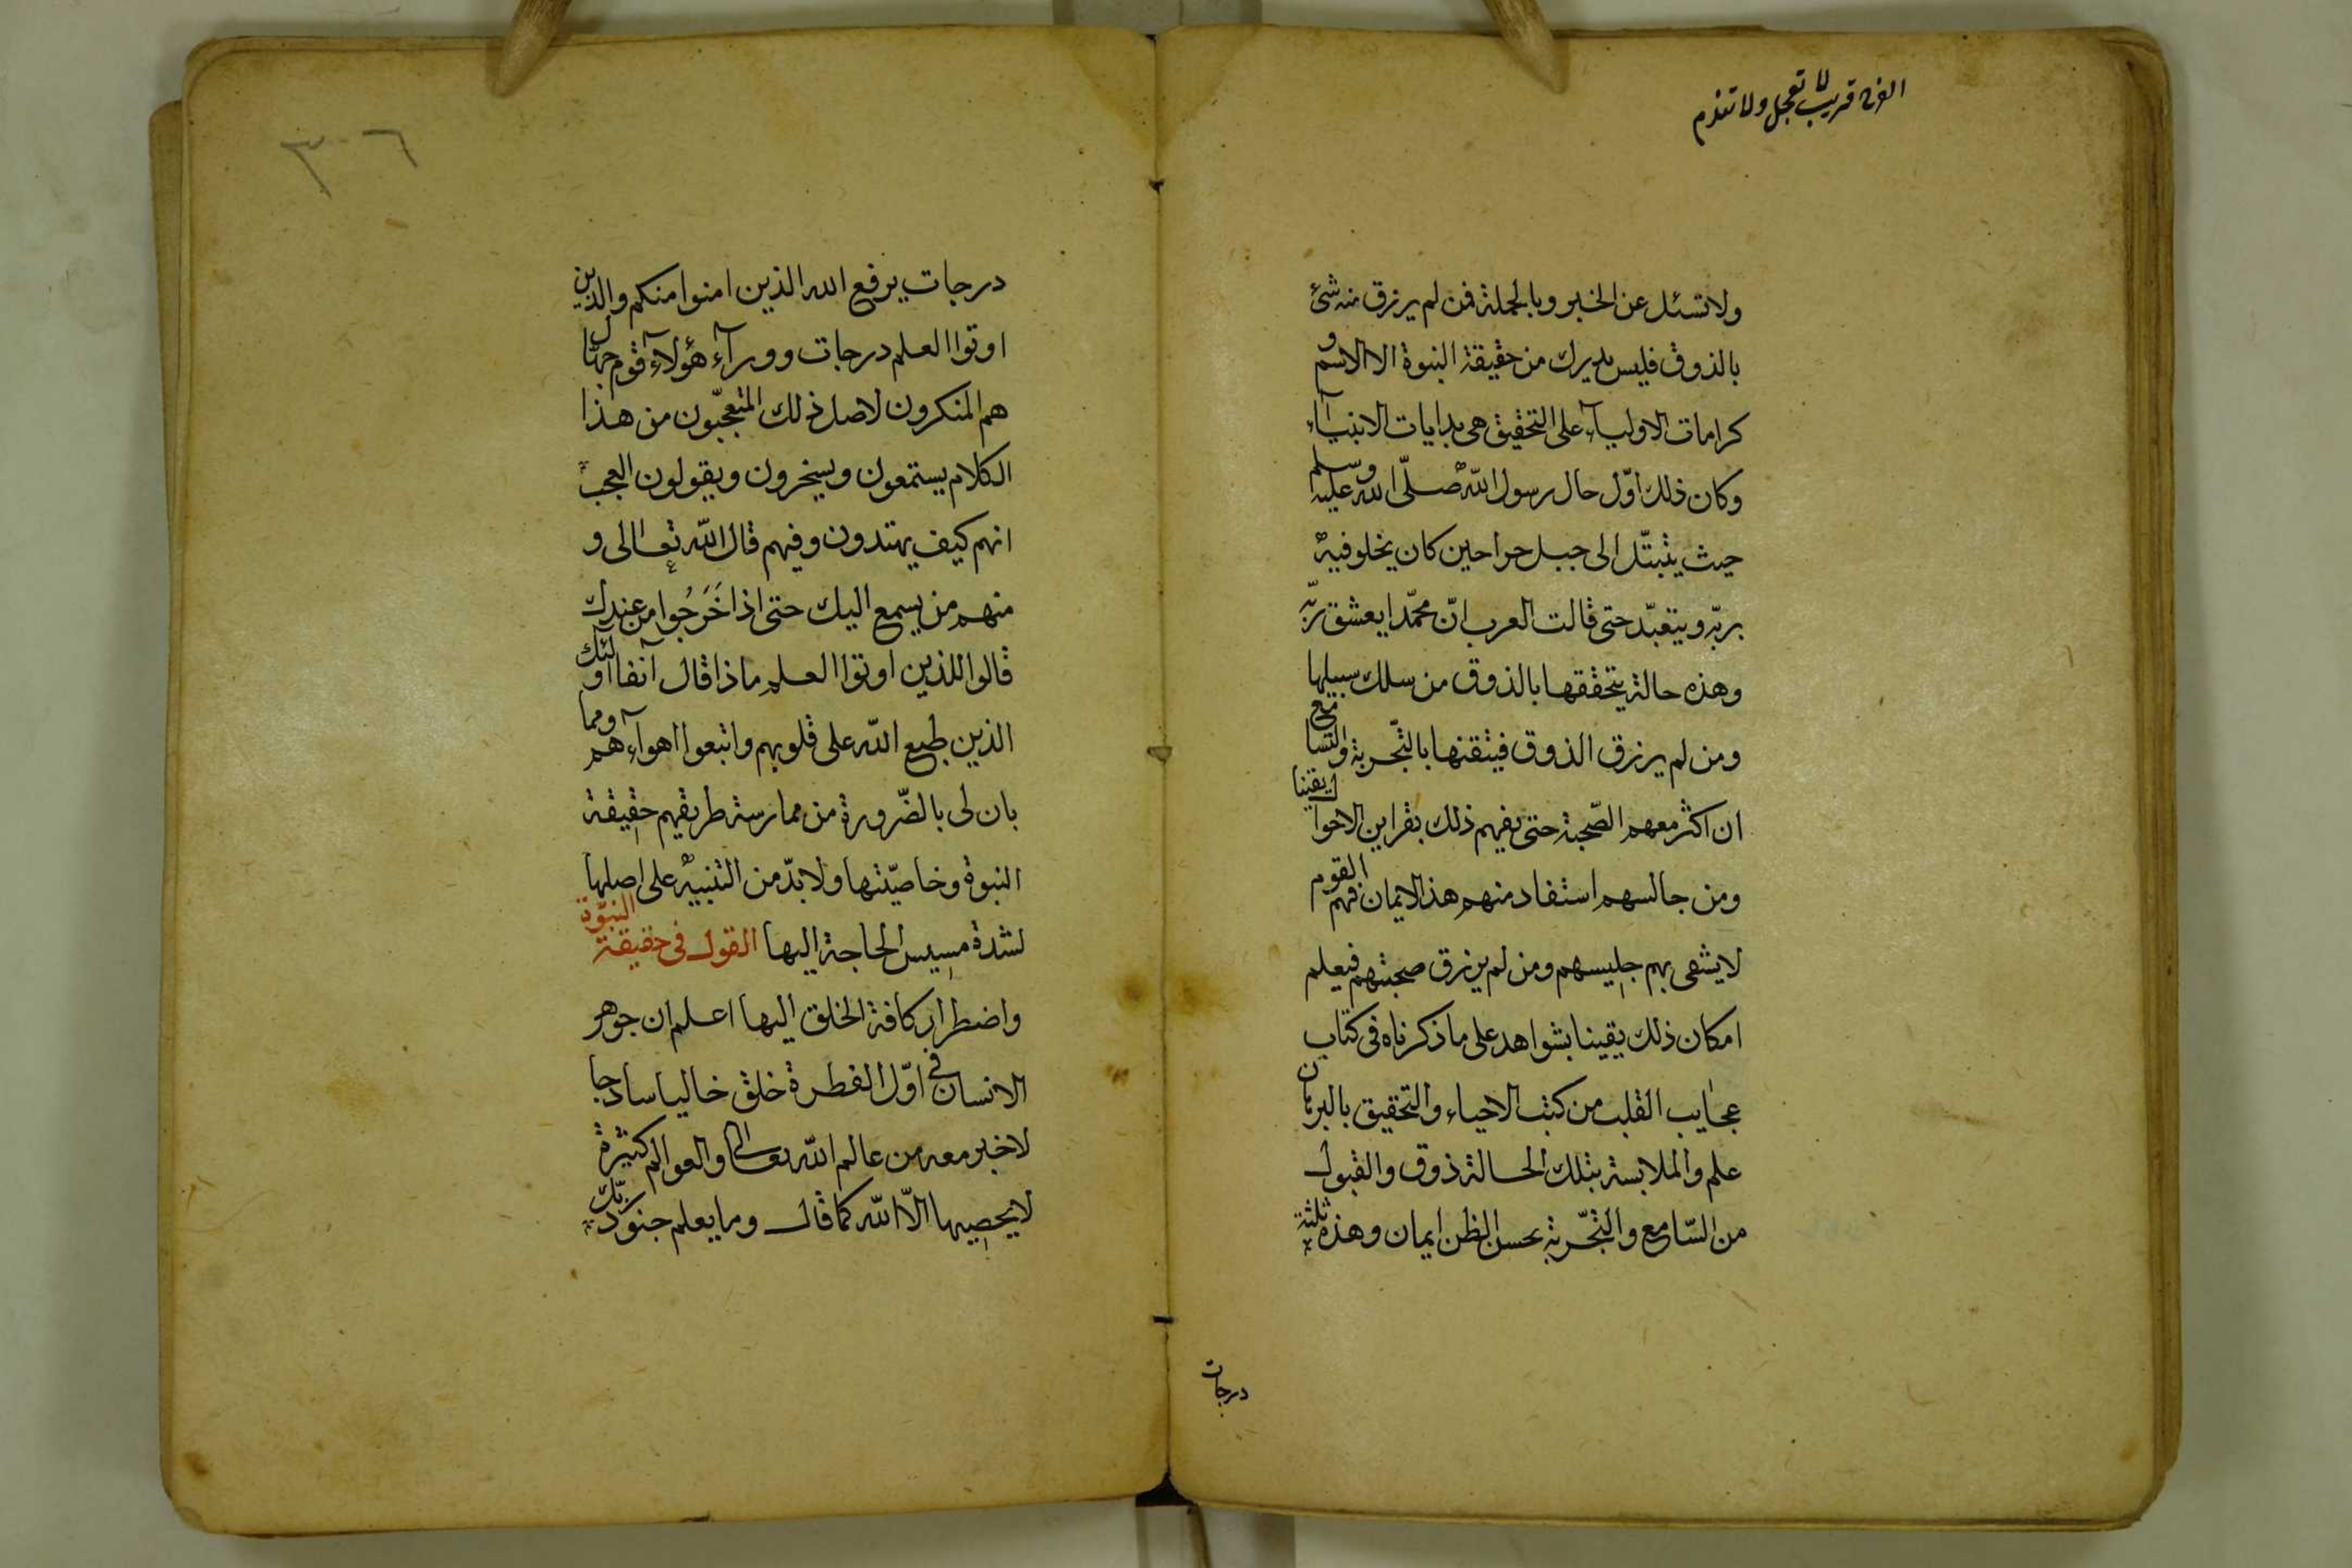 الفرح قريب لا تعجل ولا تندم
ولا تسئل عن الخبر وبالجملة فمن لم يرزق منه شئ
بالذوق فليس يدرك من حقيقة النبوة الا الاسم و
كرامات الاوليآء على التحقيق هى بدايات الانبيآء
وكان ذلك اوّل حال رسول اللّه صلّى الله عليه وسلم
حيث يتبتّل الى جبل حراحين كان يخلو فيه
بربّه ويتعبّد حتى قالت العرب انّ محمّدا يعشق ربّه
وهذه حالة يتحققها بالذوق من سلك سبيلها
ومن لم يرزق الذوق فيتقنها بالتّجربة والتسامع
ان اكثر معهم الصّحبة حتى يفهم ذلك بقراين الاحوال يقينا
ومن جالسهم استفاد منهم هذا الايمان فهم القوم
لا يشقى بهم جليسهم ومن لم يرزق صحبتهم فيعلم
امكان ذلك يقينا بشواهد على ما ذكرناه فى كتاب
عجايب القلب من كتب الاحياء والتحقيق بالبرهان
علم والملابسة بتلك الحالة ذوق والقبول
من السّامع والتّجربة بحسن الظن ايمان وهذه ثلثة
درجات
٣٠٦
درجات يرفع الله الذين امنوا منكم والذين
اوتوا العلم درجات وورآء هؤلاء قوم جهال
هم المنكرون لاصل ذلك المتعجّبون من هذا
الكلام يستمعون ويسخرون ويقولون العجب
انهم كيف يهتدون وفيهم قال اللّه تعالى و
منهم من يسمع اليك حتى اذا خَرَجُوا من عندك
قالوا للذين اوتوا العلم ماذا قال آنفا اولئك
الذين طبع اللّه على قلوبهم واتبعوا اهوآءهم ومما
بان لى بالضّرورة من ممارسة طريقهم حقيقة
النبوة وخاصيّتها ولا بدّ من التنبيه على اصلها
لشدة مسيس الحاجة اليها القول فى حقيقة النبوّة
واضطرار كافة الخلق اليها اعلم ان جوهر
الانسان في اوّل الفطرة خلق خاليا سادجا
لا خبر معه من عالم اللّه تعالى والعوالم كثيرة
لا يحصيها الّا اللّه كما قال وما يعلم جنود ربّك